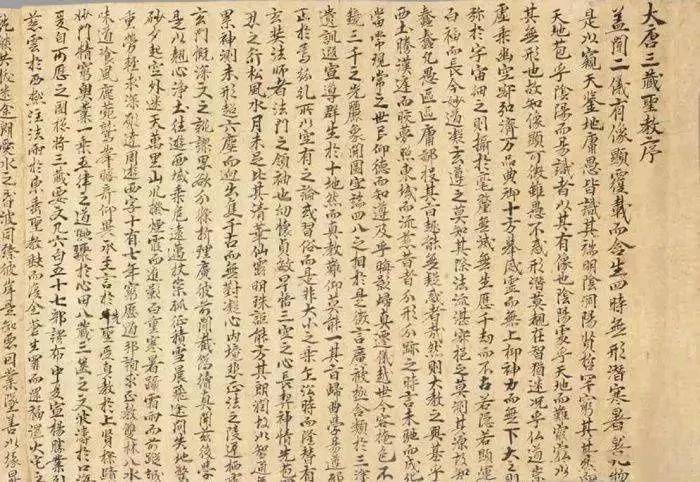 大唐三藏聖教序
盖聞二儀有像顯覆載而含生四時無形潛寒暑以化物
是以窺天鑒地庸愚皆識其端明陰洞陽賢哲罕窮其數然而
天地苞乎陰陽而易識者以其有像也陰陽處乎天地而難窮者以
其無形也故知像顯可徵雖愚不惑形潛莫覩在智猶迷况乎仏道崇
虛乘幽控寂弘濟万品典御十方舉威靈而無上抑神力而無下大之則
弥於宇宙細之則攝於毫釐無滅無生歷千劫而不古若隱若顯運
百福而長今妙道凝玄遵之莫知其際法流湛寂挹之莫測其源故知
蠢蠢凡愚區區庸鄙投其旨趣能無疑惑者哉然則大教之興基乎
西土騰漢庭而皎夢照東域而流慈昔者分形分跡之時言未馳而成化
當常現常之世民仰德而知遵及乎晦影歸真遷儀越世金容掩色不
鏡三千之光麗象開圖空端四八之相於是微言廣被拯含類於三途
遺訓遐宣導群生於十地然而真教難仰莫能一其旨歸曲學易遵邪
正於焉紛糺所以空有之論或習俗而是非大小之乘乍沿時而隆替有
玄奘法師者法門之領袖也幼懷貞敏早悟三空之心長契神情先苞四
忍之行松風水月未足比其清華仙露明珠詎能方其朗潤故以智通無
累神測未形超六塵而迥出隻千古而無對凝心內境悲正法之陵遲栖慮
玄門慨深文之訛謬思欲分條析理廣彼前聞截偽續真開茲後學
是以翹心淨土往遊西域乘危遠邁杖策孤征積雪晨飛途間失地驚
砂夕起空外迷天萬里山川撥煙霞而進影百重寒暑躡霜雨而前蹤誠
重勞輕求深願達周遊西宇十有七年窮歷道邦詢求正教雙林八水
味道飡風鹿菀鷲峯瞻奇仰異承至言於先聖受真教於上賢探賾
妙門精窮奧業一乘五律之道馳驟於心田八藏三篋之文波濤於口海
爰自所歷之國揔將三藏要文凡六百五十七部譯布中夏宣揚勝業引
慈雲於西極注法雨於東垂聖教缺而復全蒼生罪而還福濕火宅之
乾燄共拔迷途朗愛水之昏波同臻彼岸是知惡因業墜善以緣昇